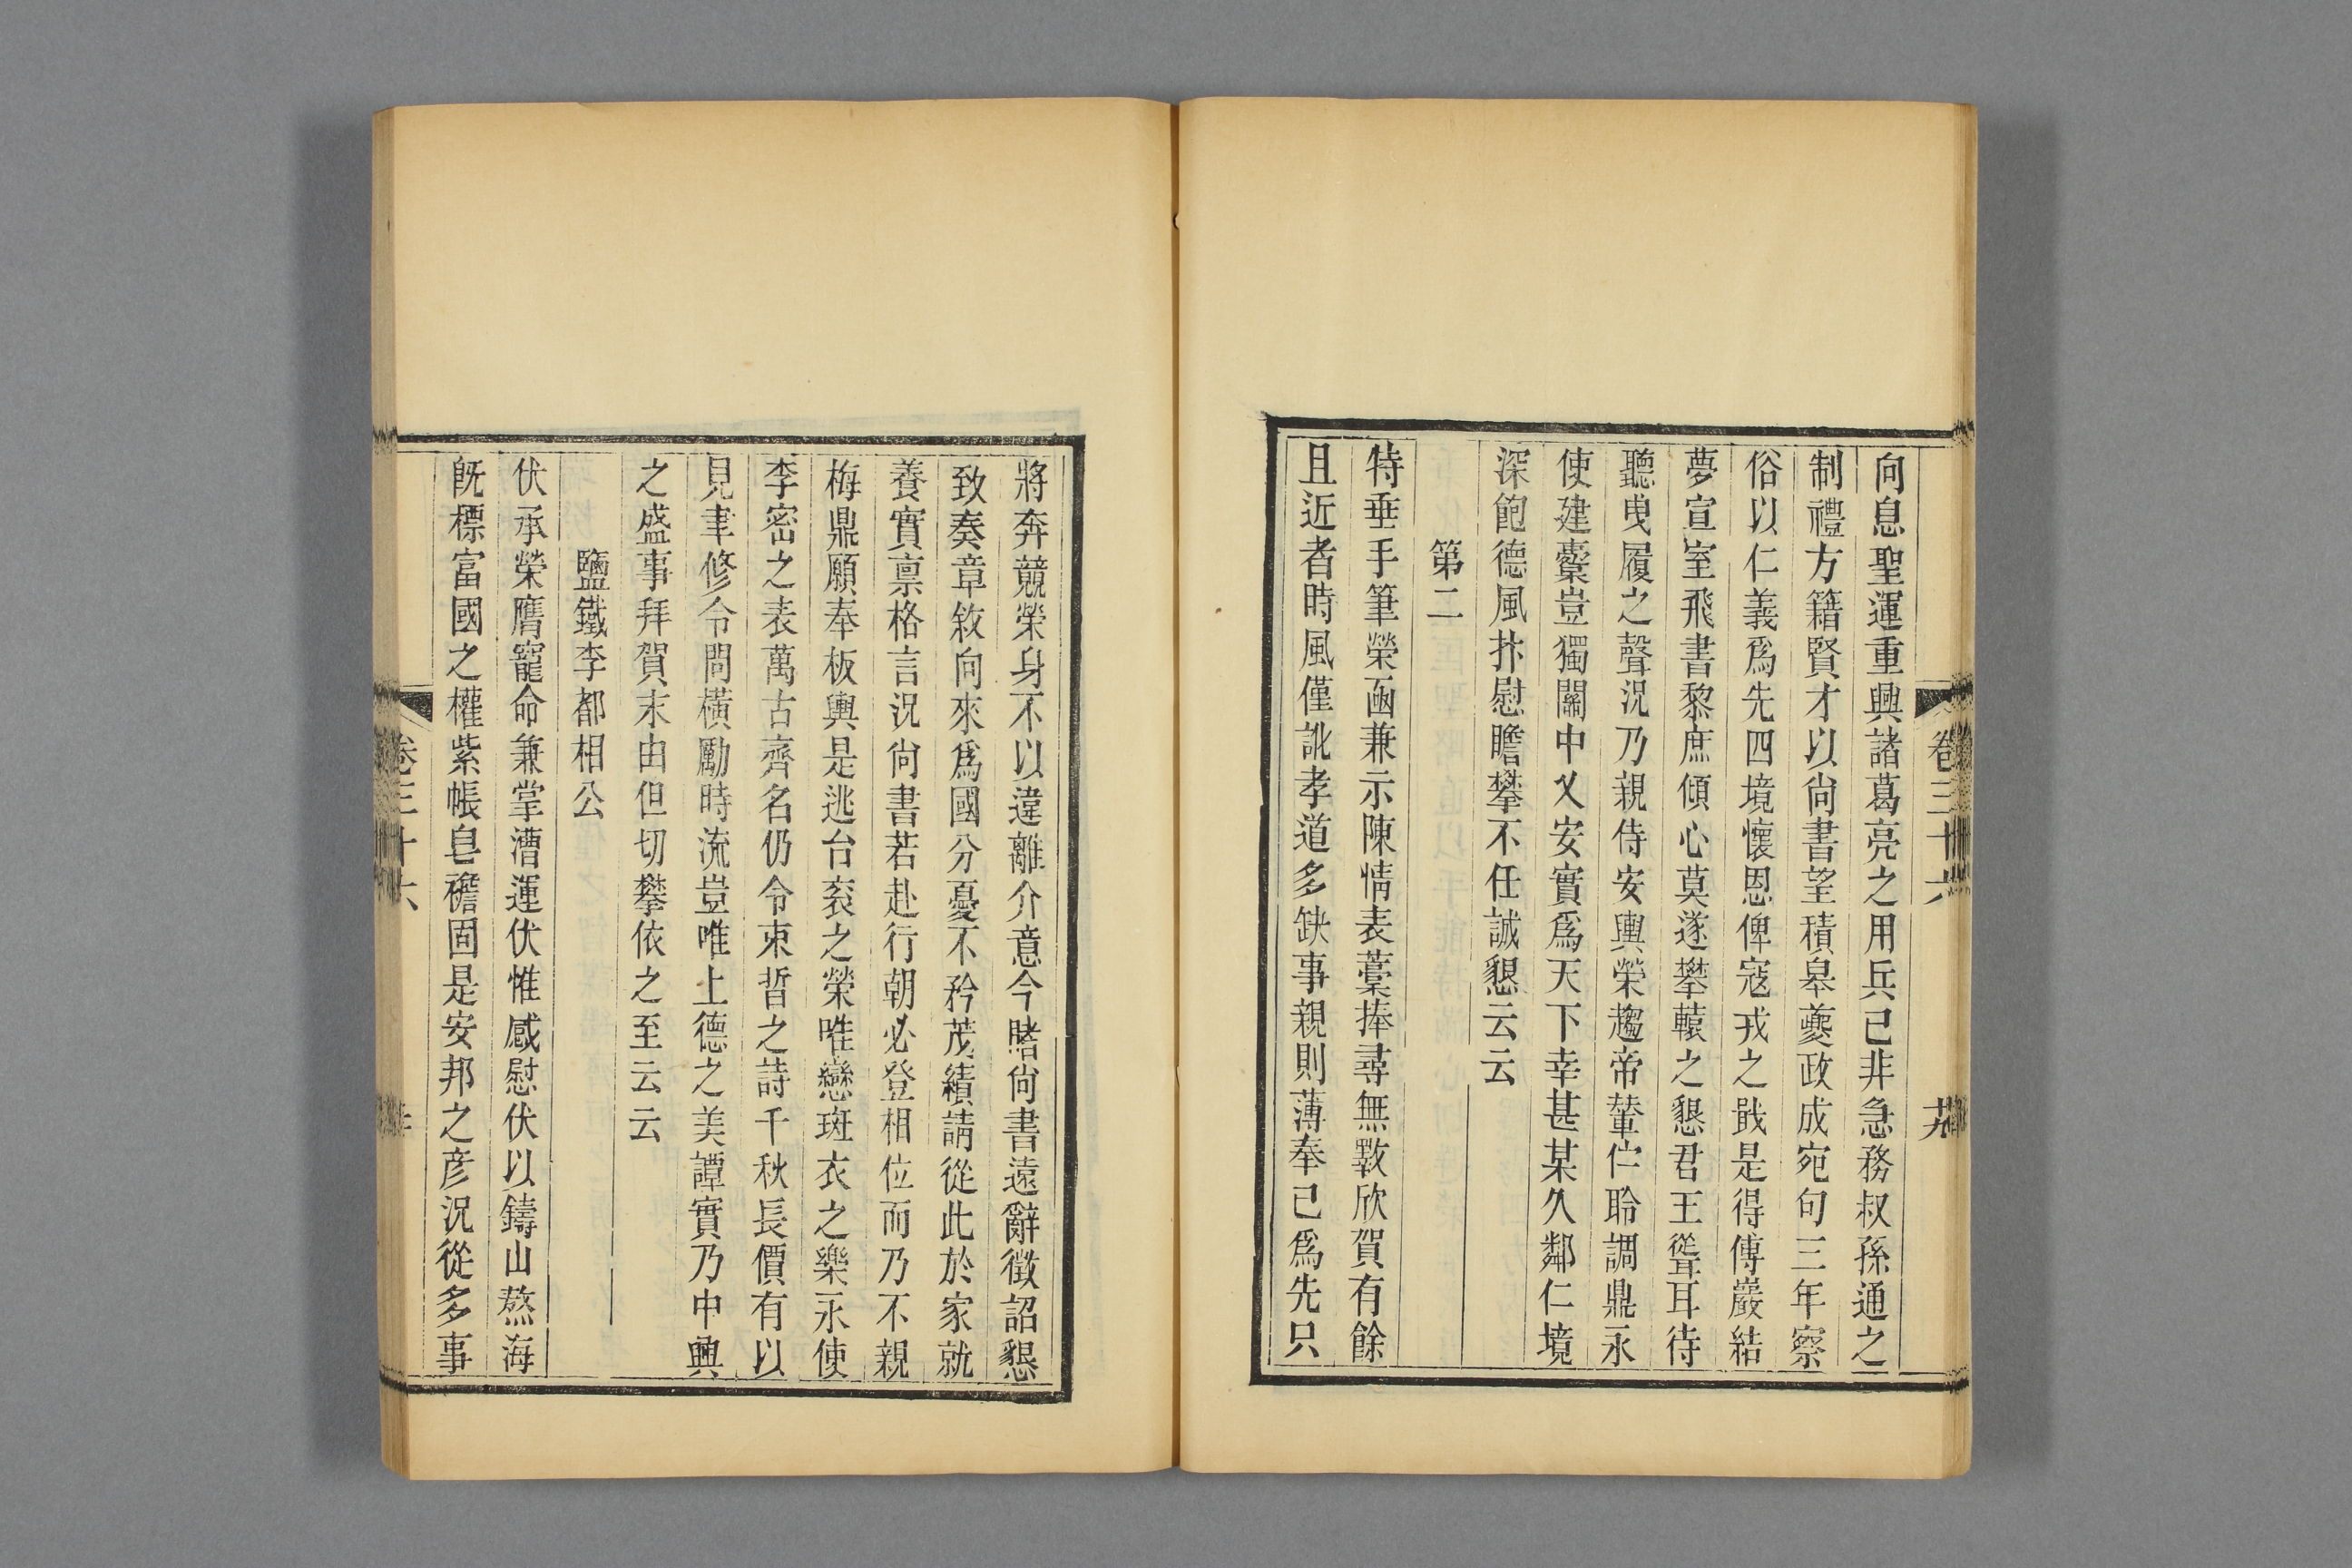 卷三十六
向息聖運重興諸葛亮之用兵已非急務叔孫通之
制禮方籍賢才以尙書望積皋夔政成宛句三年察
俗以仁義爲先四境懷恩俾寇戎之戢是得傅巖結
夢宣室飛書黎庶傾心莫遂攀轅之懇君王聳耳待
聽曳履之聲況乃親侍安輿榮趨帝輦伫聆調鼎永
使建櫜豈獨關中乂安實爲天下幸甚某久鄰仁境
深飽德風抃慰瞻攀不任誠懇云云
第二
特垂手筆榮函兼示陳情表藁捧尋無斁欣賀有餘
且近者時風僅訛孝道多缺事親則薄奉己爲先只
將奔競榮身不以違離介意今睹尙書遠辭徵詔懇
致奏章敘向來爲國分憂不矜茂績請從此於家就
養實禀格言況尙書若赴行朝必登相位而乃不親
梅鼎願奉板輿是逃台衮之榮唯戀斑衣之樂永使
李密之表萬古齊名仍令束晳之詩千秋長價有以
見聿修令問橫勵時流豈唯上德之美譚實乃中興
之盛事拜賀末由但切攀依之至云云
鹽鐵李都相公
伏承榮膺寵命兼掌漕運伏惟感慰伏以鑄山熬海
旣標富國之權紫帳皂襜固是安邦之彦況從多事
卷三十六